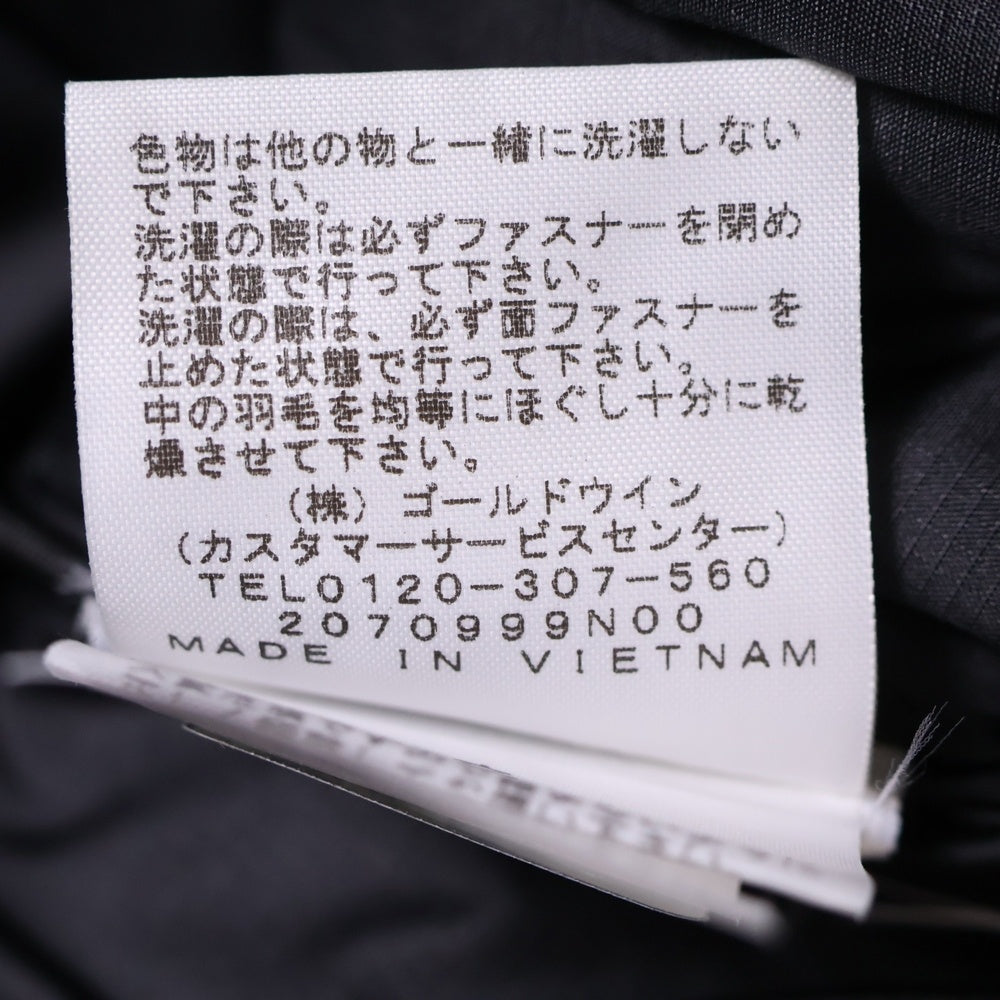 色物は他の物と一緒に洗濯しない
で下さい。
洗濯の際は必ずファスナーを閉め
た状態で行って下さい。
洗濯の際は、必ず面ファスナーを
止めた状態で行って下さい。
中の羽毛を均等にほぐし十分に乾
燥させて下さい。
(株) ゴールドウイン
(カスタマーサービスセンター)
TEL0120-307-560
2070999N00
MADE IN VIETNAM